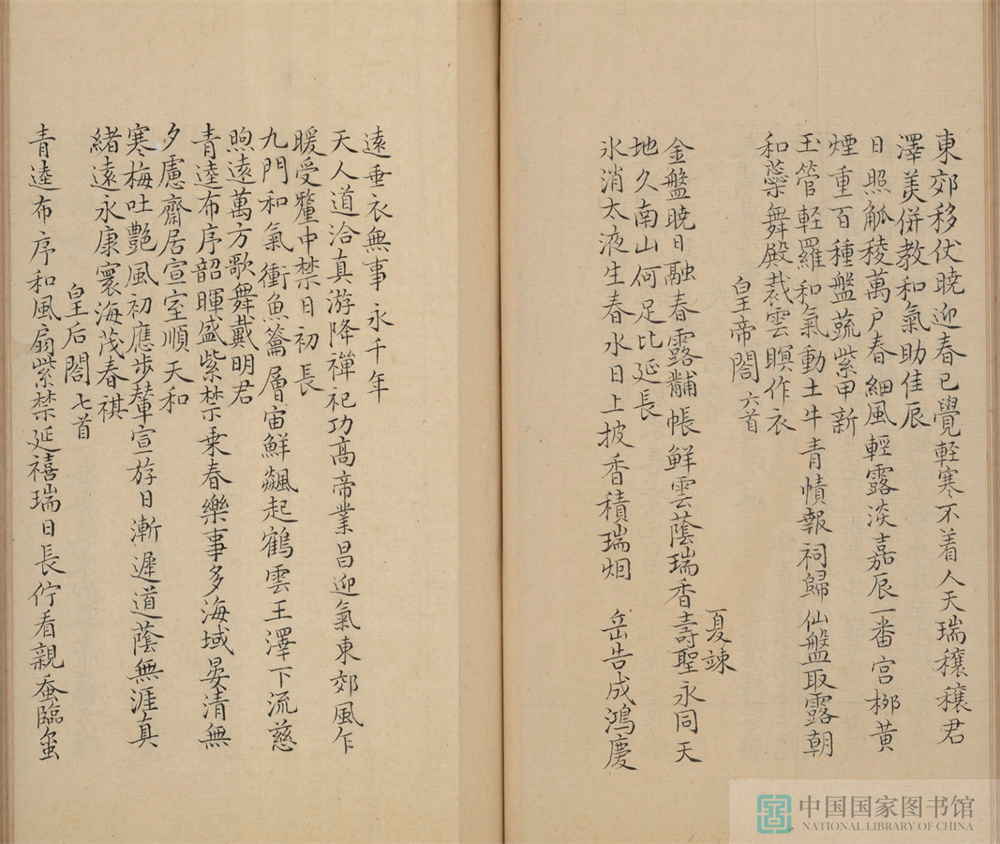 東郊移仗曉迎春已覺軽寒不着人天瑞穰穰君
澤美併教和氣助佳辰
日照觚稜萬戸春細風輕露淡嘉辰一番宮桞黄
煙重百種盤蔬紫甲新
玉管軽羅和氣動土牛青幘報祠歸仙盤取露朝
和蘂舞殿裁雲瞑作衣
皇帝閤六首
夏竦
金盤曉日融春露黼帳鮮雲蔭瑞香壽聖永同天
地久南山何足比延長
氷消太液生春水日上披香積瑞烟岳告成鴻慶
遠垂衣無事永千年
天人道洽真游降禪祀功高帝業昌迎氣東郊風乍
暖受釐中禁日初長
九門和氣衝魚鑰層宙鮮飇起鶴雲王澤下流慈
煦遠萬方歌舞戴明君
青逵布序韶暉盛紫禁乗春樂事多海域晏清無
夕慮齋居宣室順天和
寒梅吐艷風初應歩輦宣游日漸遲道蔭無涯真
緒遠永康寰海茂春祺
皇后閤七首
青逵布序和風扇紫禁延禧瑞日長佇看親蚕臨蠒
中国国家图书馆
NATIONAL LIBRARY OF CHINA